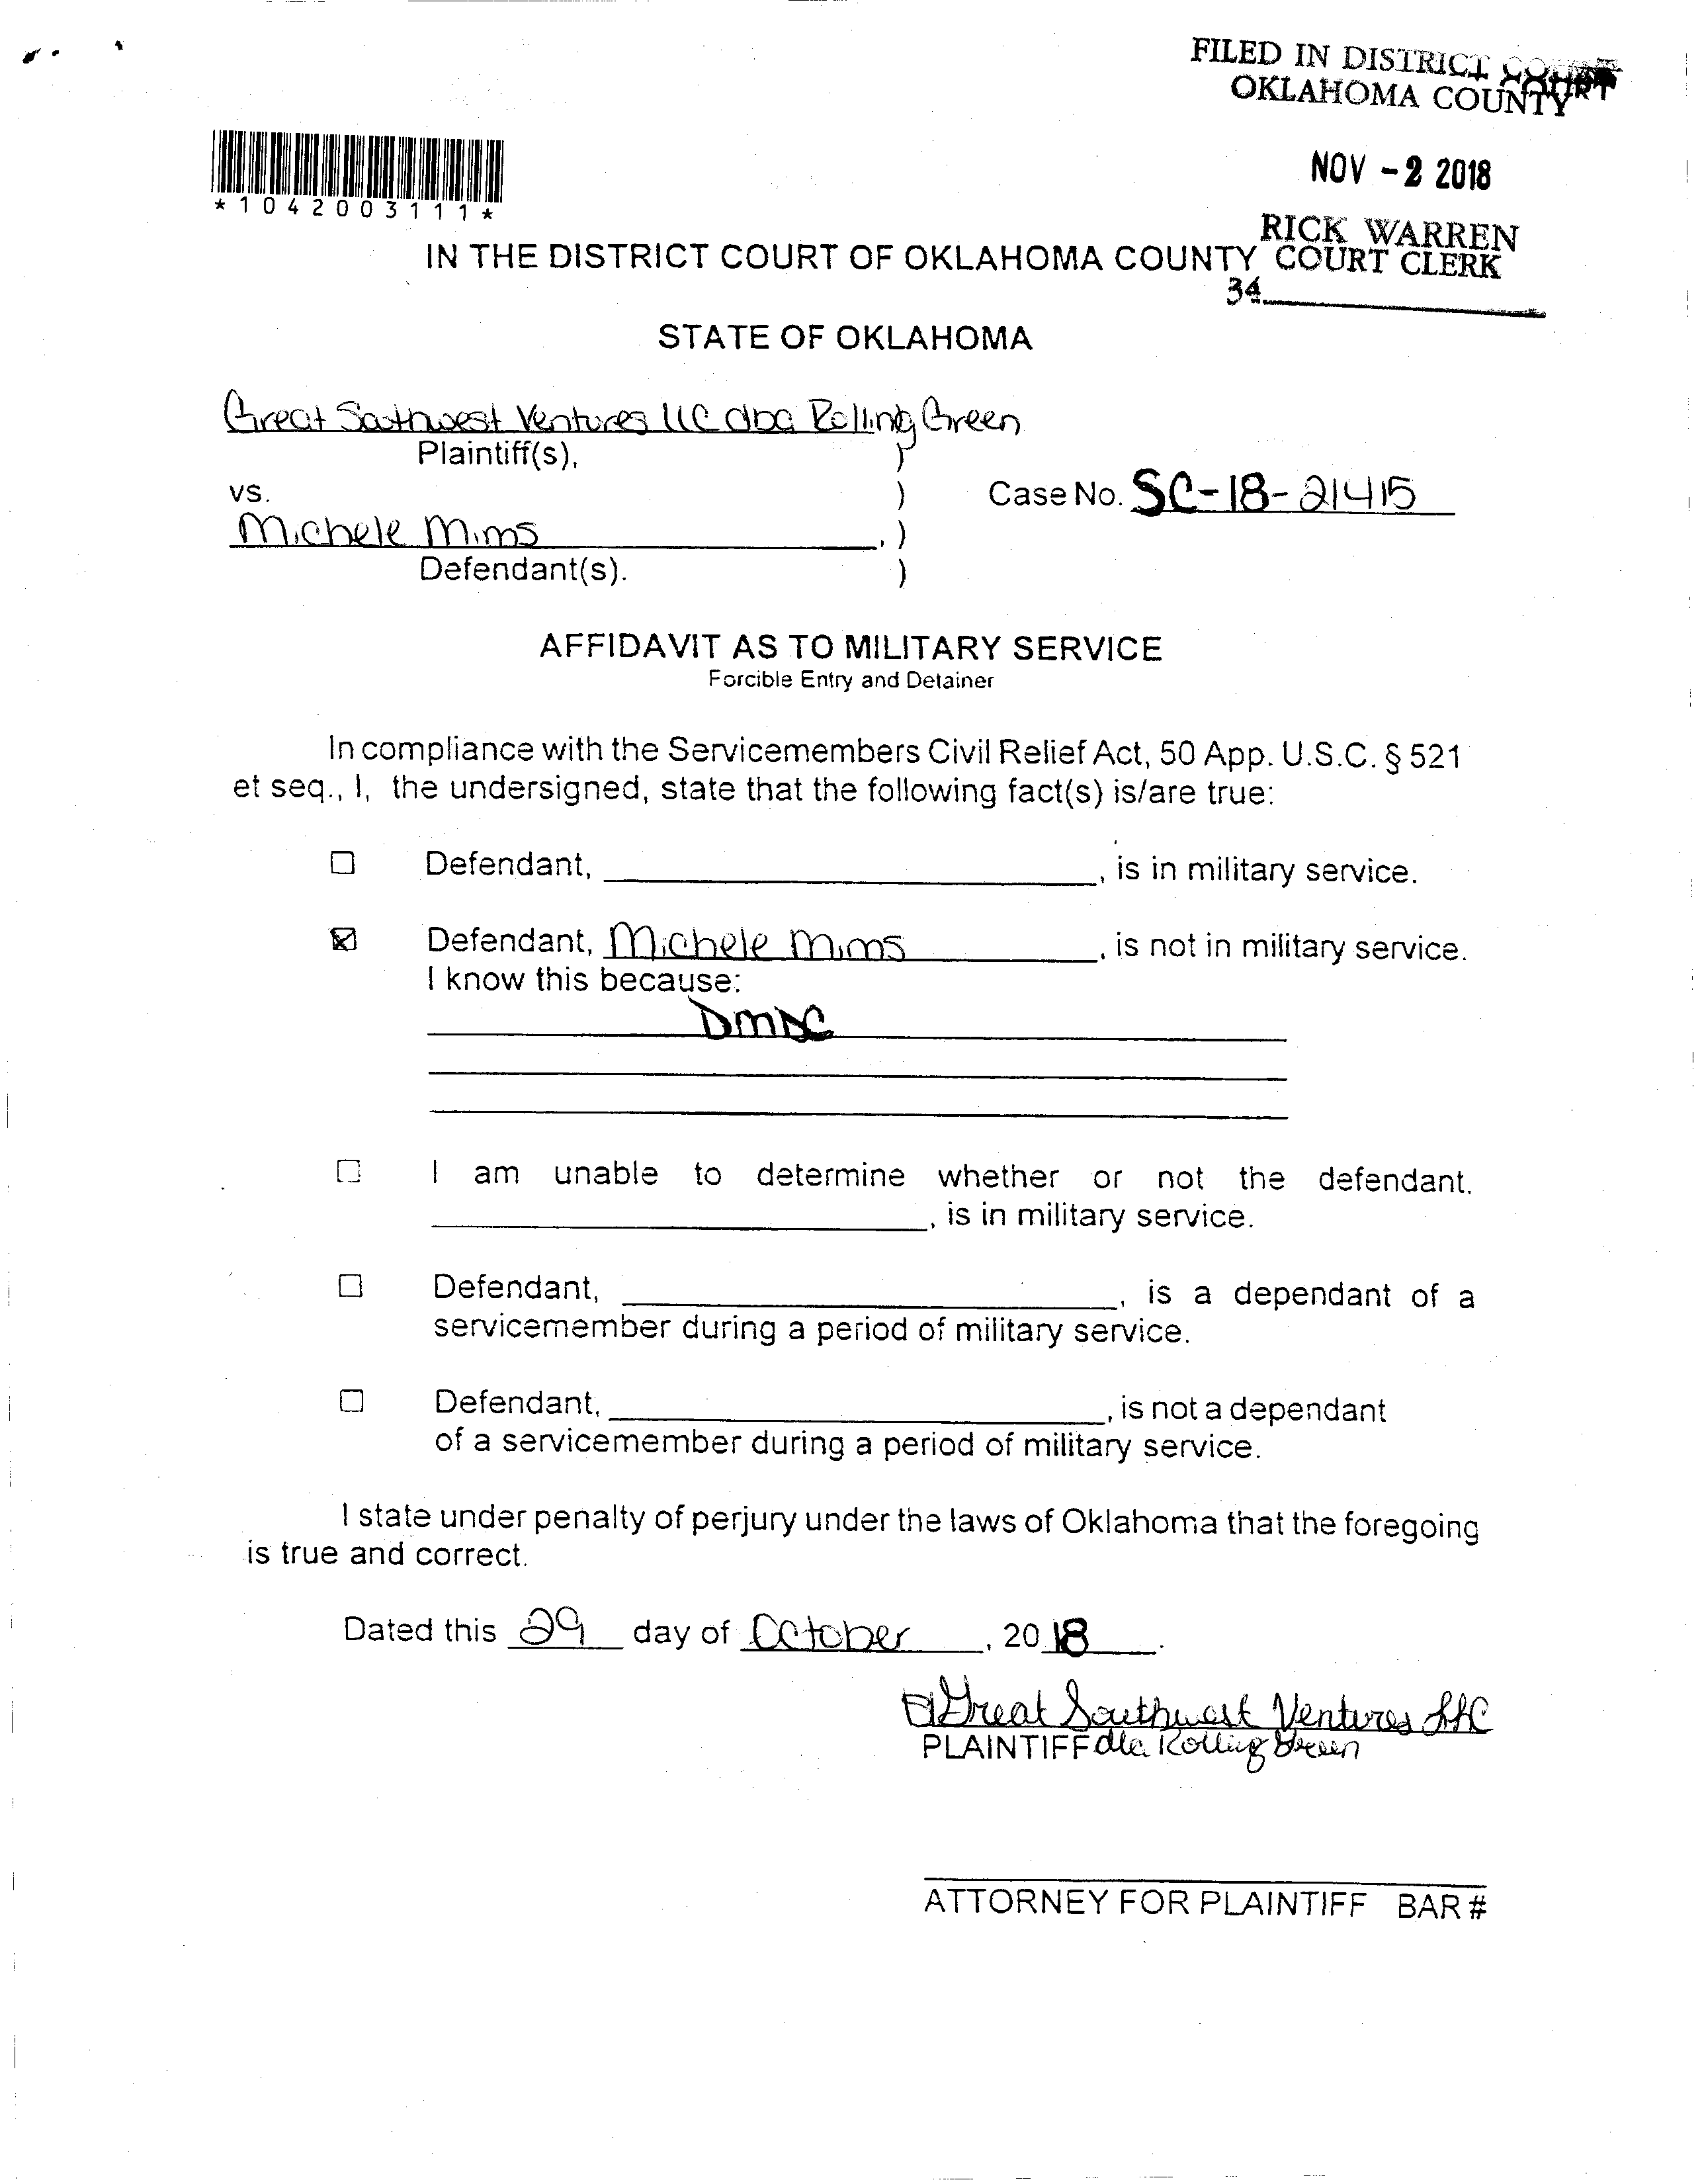 FILED IN DISTRICT COURT
OKLAHOMA COUNTY
NOV - 2 2018
*1042003111*
RICK WARREN
IN THE DISTRICT COURT OF OKLAHOMA COUNTY COURT CLERK
34
STATE OF OKLAHOMA
Great Southwest Ventures LLC dba Rolling Green
Plaintiff(s), )
vs. ) Case No. SC-18-21415
Michele Mims , )
Defendant(s). )
AFFIDAVIT AS TO MILITARY SERVICE
Forcible Entry and Detainer
In compliance with the Servicemembers Civil Relief Act, 50 App. U.S.C. § 521
et seq., I, the undersigned, state that the following fact(s) is/are true:
☐ Defendant, , is in military service.
☒ Defendant, Michele Mims , is not in military service.
I know this because:
DMDC
☐ I am unable to determine whether or not the defendant,
, is in military service.
☐ Defendant, , is a dependant of a
servicemember during a period of military service.
☐ Defendant, , is not a dependant
of a servicemember during a period of military service.
I state under penalty of perjury under the laws of Oklahoma that the foregoing
is true and correct.
Dated this 29 day of October , 20 18 .
Great Southwest Ventures LLC
PLAINTIFF dba Rolling Green
ATTORNEY FOR PLAINTIFF BAR #